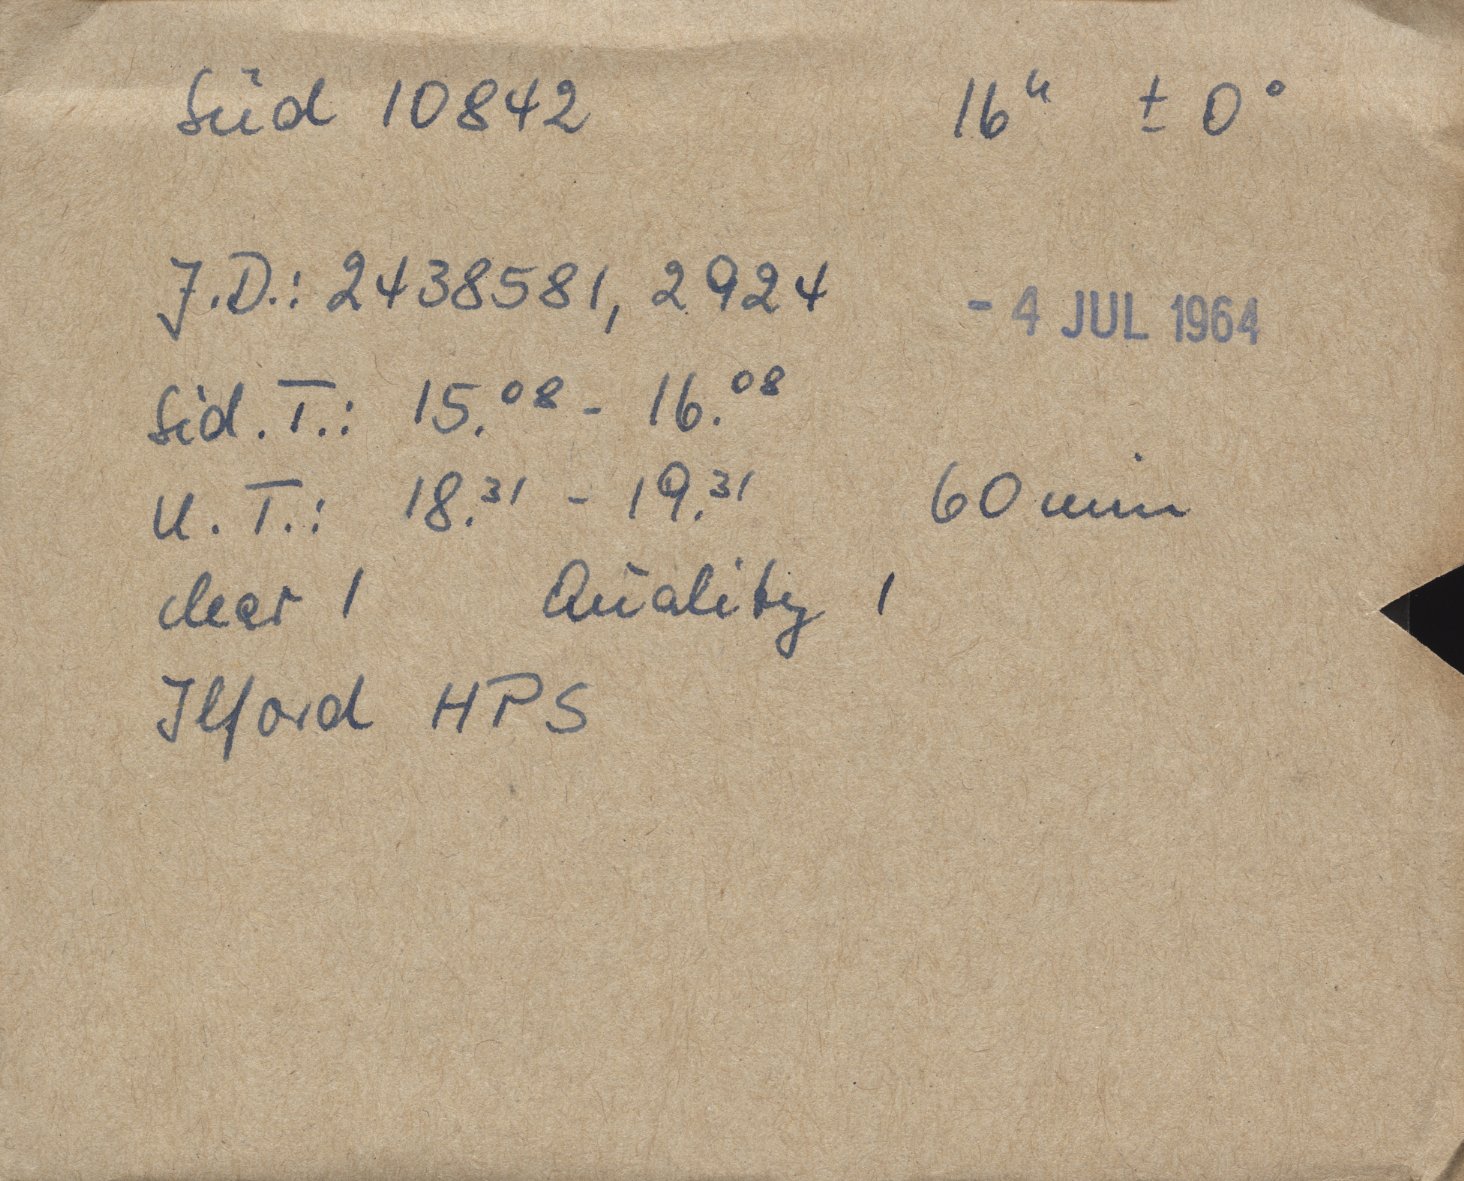 Süd 10842 16ʰ ± 0°
J.D.: 2438581,2924 - 4 JUL 1964
Sid. T.: 15.⁰⁸ - 16.⁰⁸
U. T.: 18.³¹ - 19.³¹ 60 min
clear 1 Quality 1
Ilford HPS